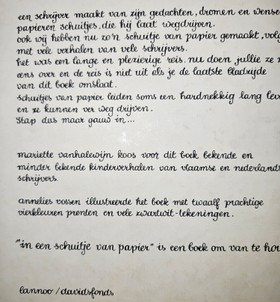 een schrijver maakt van zijn gedachten, dromen en wense
papieren schuitjes, die hij laat wegdrijven.
ook wij hebben nu zo'n schuitje van papier gemaakt, vol
met vele verhalen van vele schrijvers.
het was een lange en plezierige reis. nu doen jullie ze n
eens over en de reis is niet uit als je de laatste bladzijde
van dit boek omslaat.
schuitjes van papier leiden soms een hardnekkig lang lev
en ze kunnen ver weg drijven.
stap dus maar gauw in...
mariette vanhalewijn koos voor dit boek bekende en
minder bekende kinderverhalen van vlaamse en nederlands
schrijvers.
annelies vossen illustreerde het boek met twaalf prachtige
vierkleuren prenten en vele zwartwit-tekeningen.
"in een schuitje van papier" is een boek om van te hou
lannoo/davidsfonds